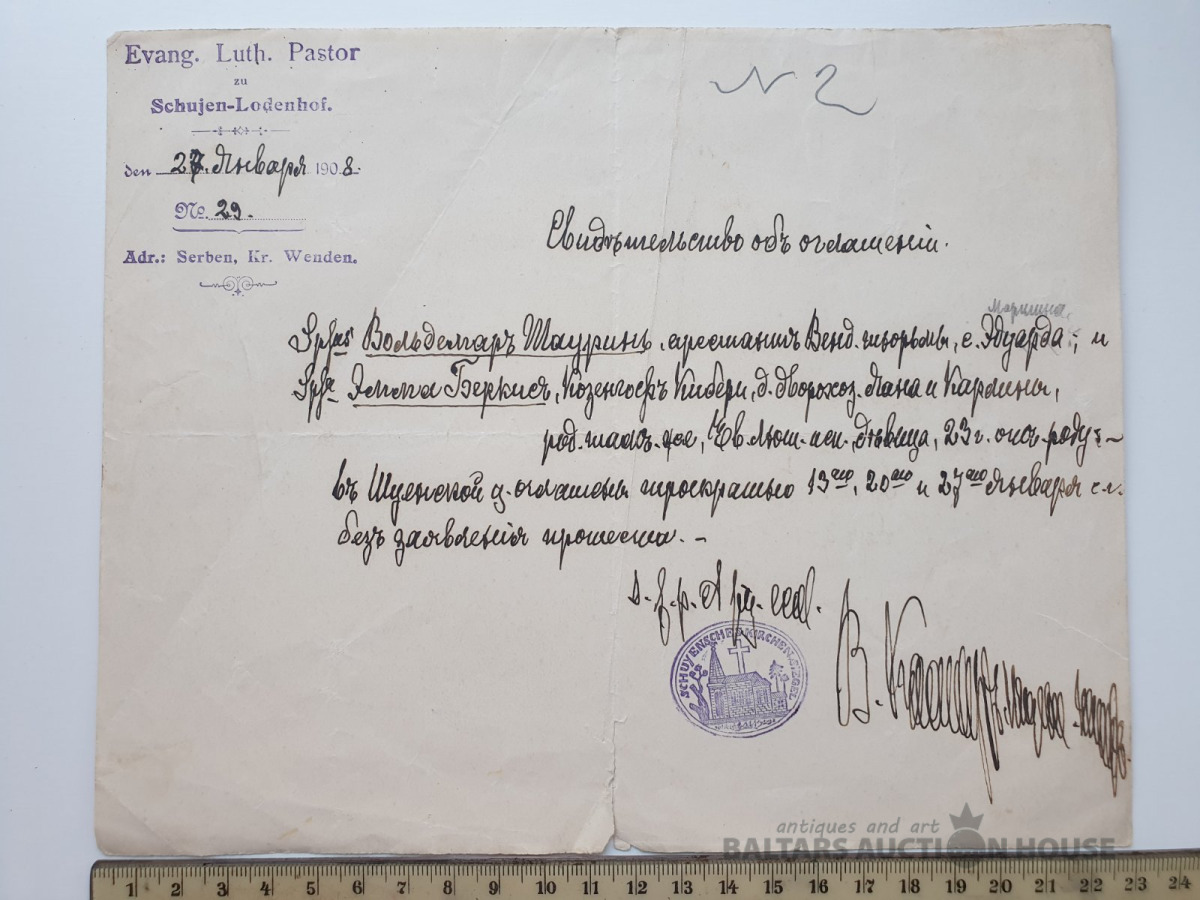 Evang. Luth. Pastor
zu
Schujen-Lodenhof.
N 2
den 27. Января 1908.
No. 29.
Adr.: Serben, Kr. Wenden.
Свидѣтельство объ оглашеніи.
Вольдемаръ Тауринь, арестантъ Венд. тюрьмы, с. Эдуарда, и
Эмма Беркисъ, Козенгофъ Кибери, д. дворохоз. Яна и Карлины,
род. тамъ-же, Ев. лют. исп. дѣвица, 23 г. отъ роду, –
въ Шуенской ц. оглашены троекратно 13го, 20го и 27го Января с.г.
безъ заявленія протеста. –
SCHUYENSCHES KIRCHEN SIEGEL
antiques and art
BALTARS AUCTION HOUSE
1 2 3 4 5 6 7 8 9 10 11 12 13 14 15 16 17 18 19 20 21 22 23 24